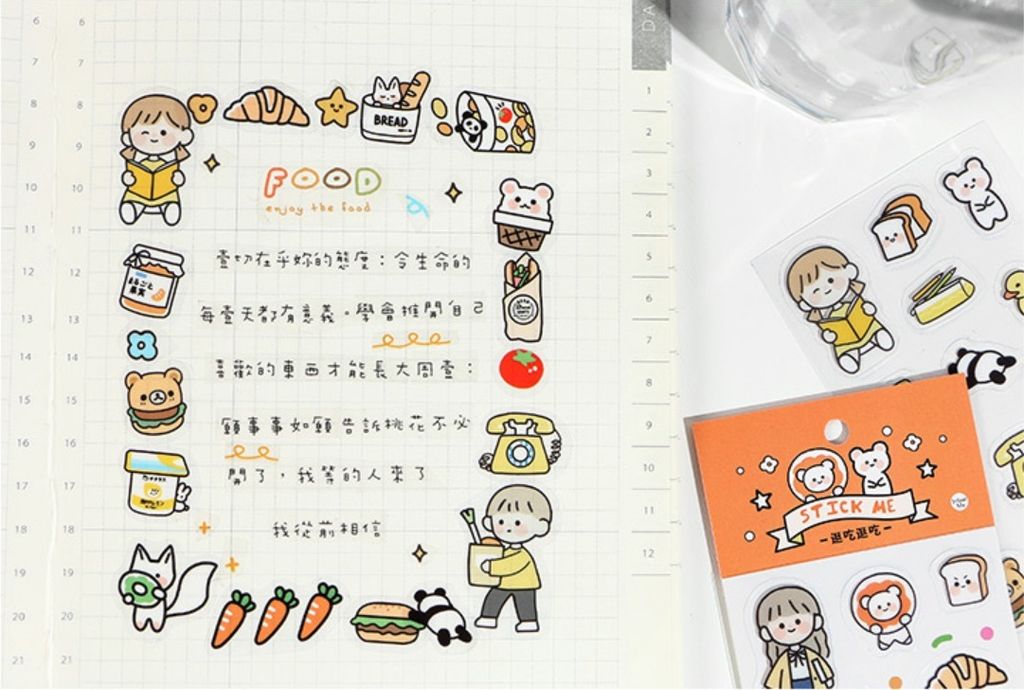 BREAD
FOOD
enjoy the food
壹切在乎妳的態度：令生命的
每壹天都有意義。學會推開自己
喜歡的東西才能長大周壹：
願事事如願告訴桃花不必
開了，我等的人來了
我從前相信
まるごと
果実
STICK ME
逛吃逛吃
DA
6
7
8
9
10
11
12
13
14
15
16
17
18
19
20
21
6
7
8
9
10
11
12
13
14
15
16
17
18
19
20
21
1
2
3
4
5
6
7
8
9
10
11
12